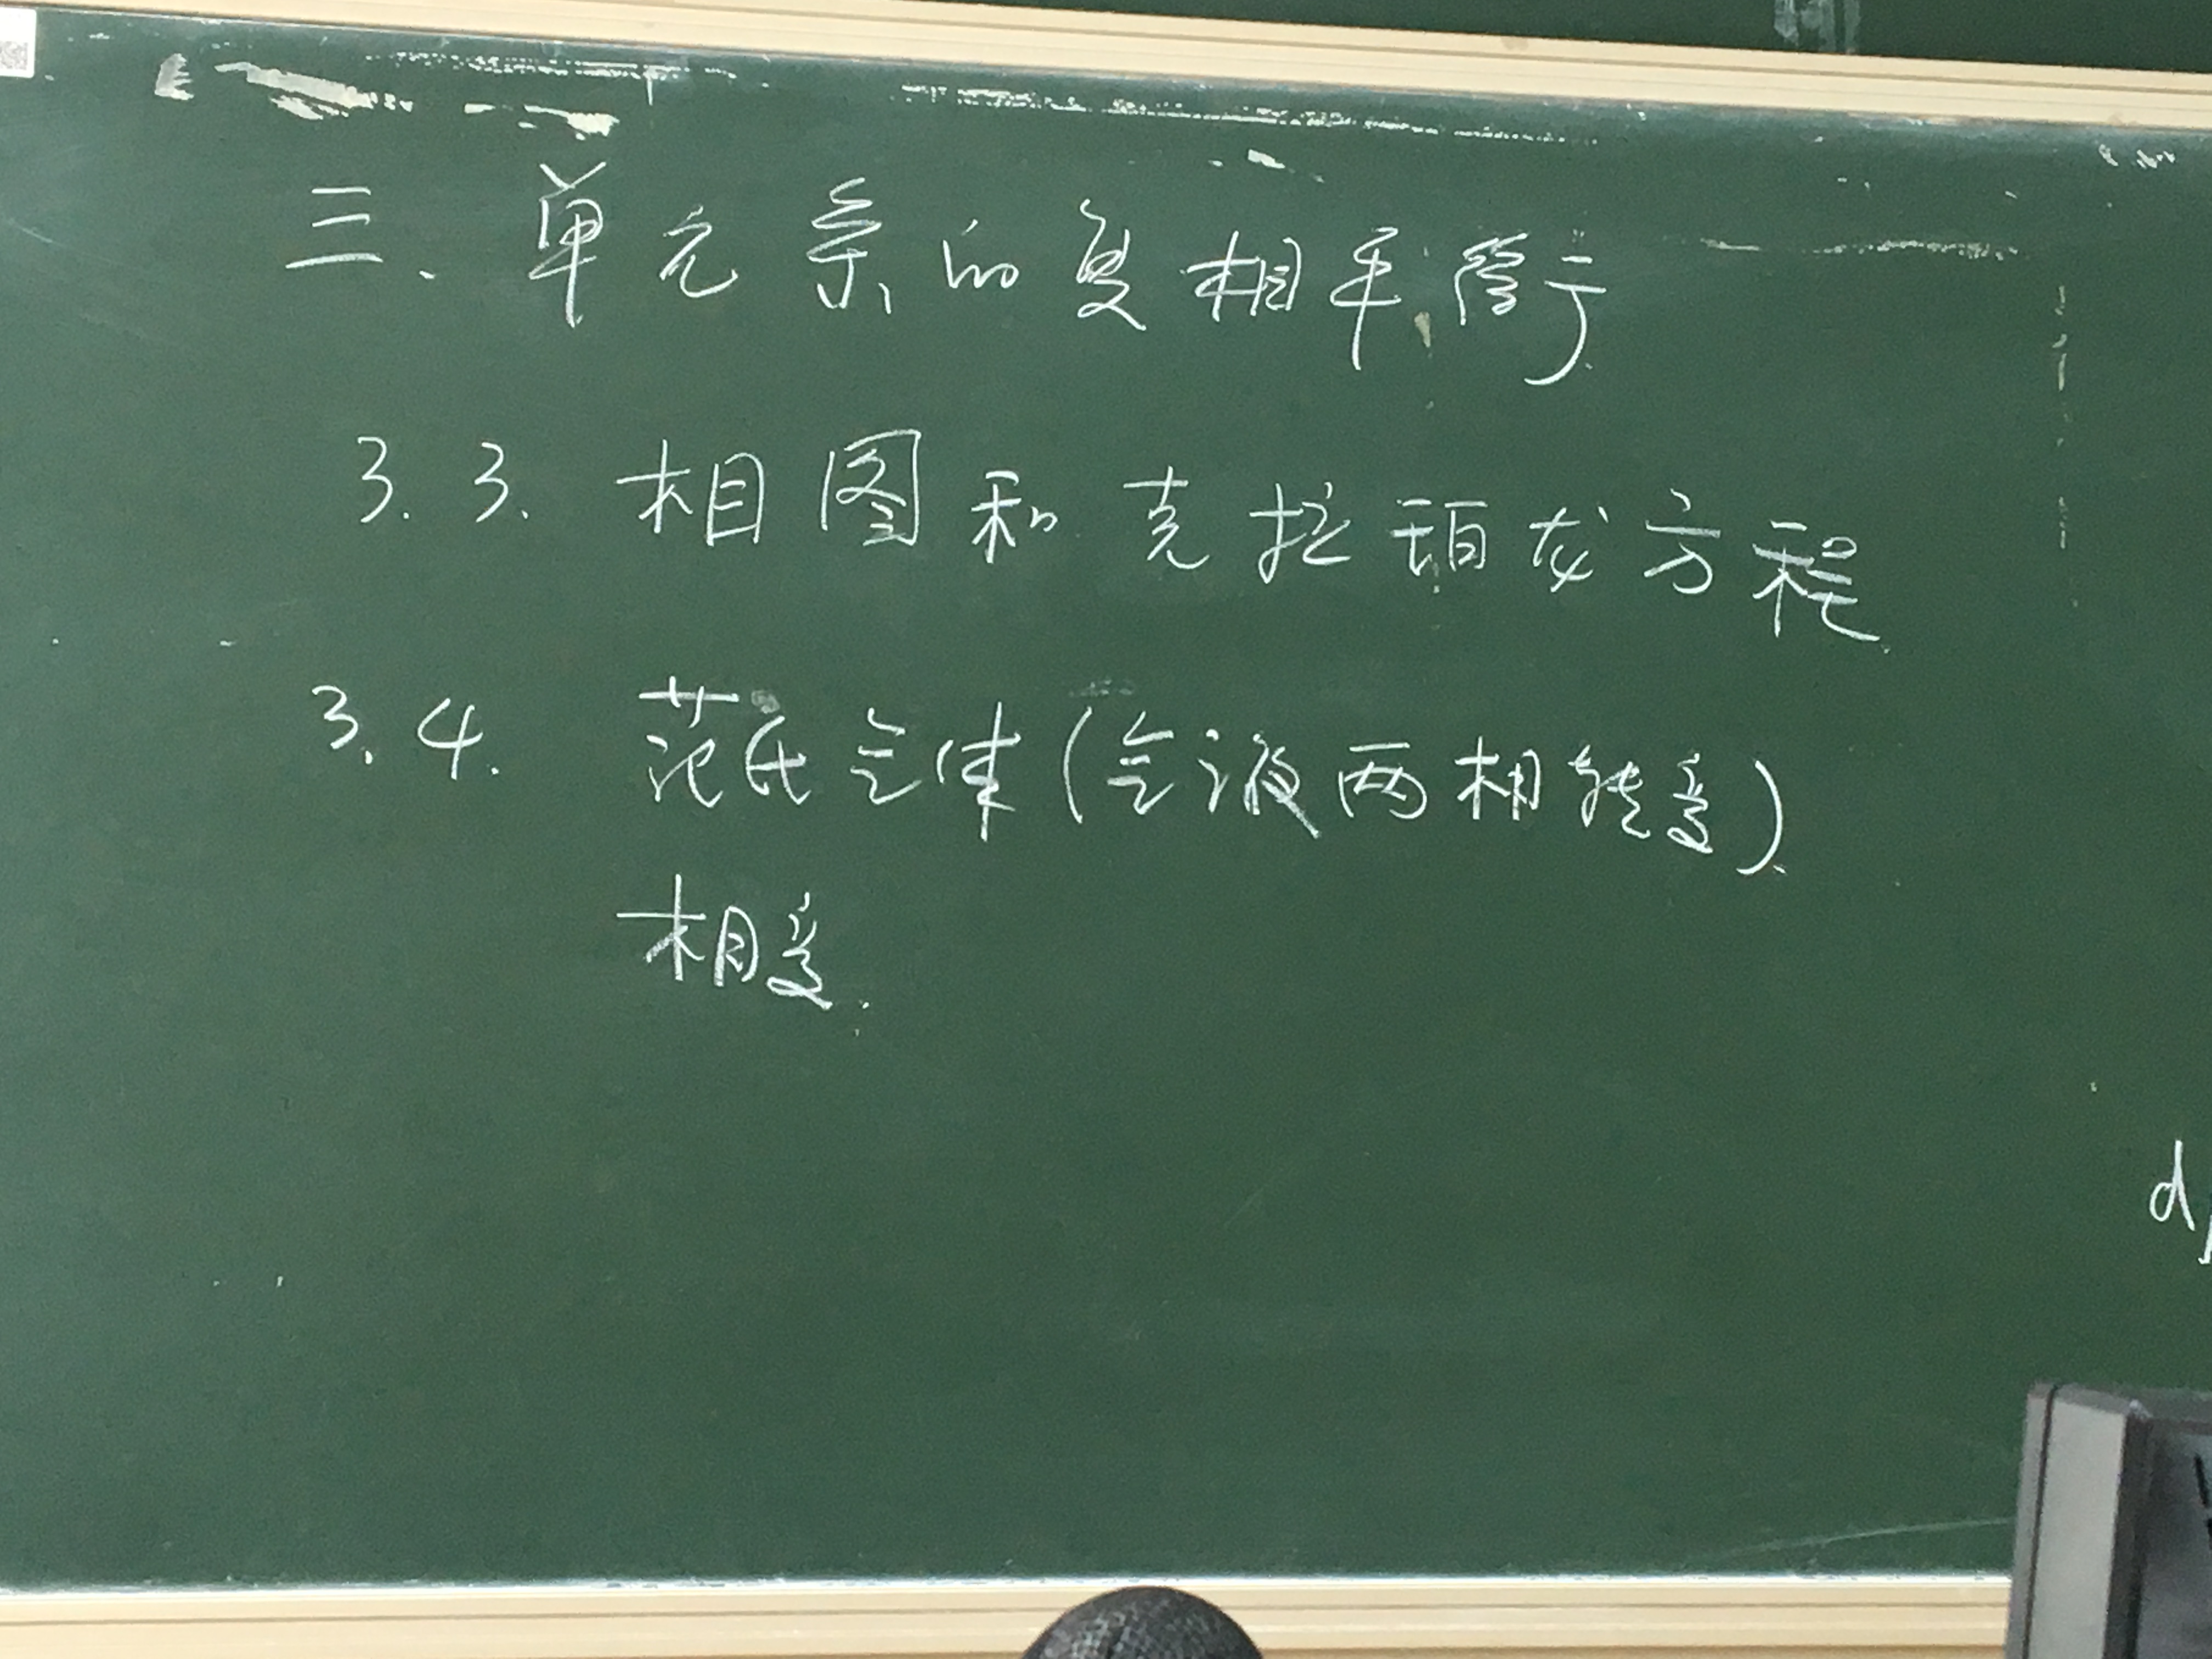 三、单元系的复相平衡
3.3. 相图和克拉珀龙方程
3.4. 范氏气体(气液两相转变)
相变.
d